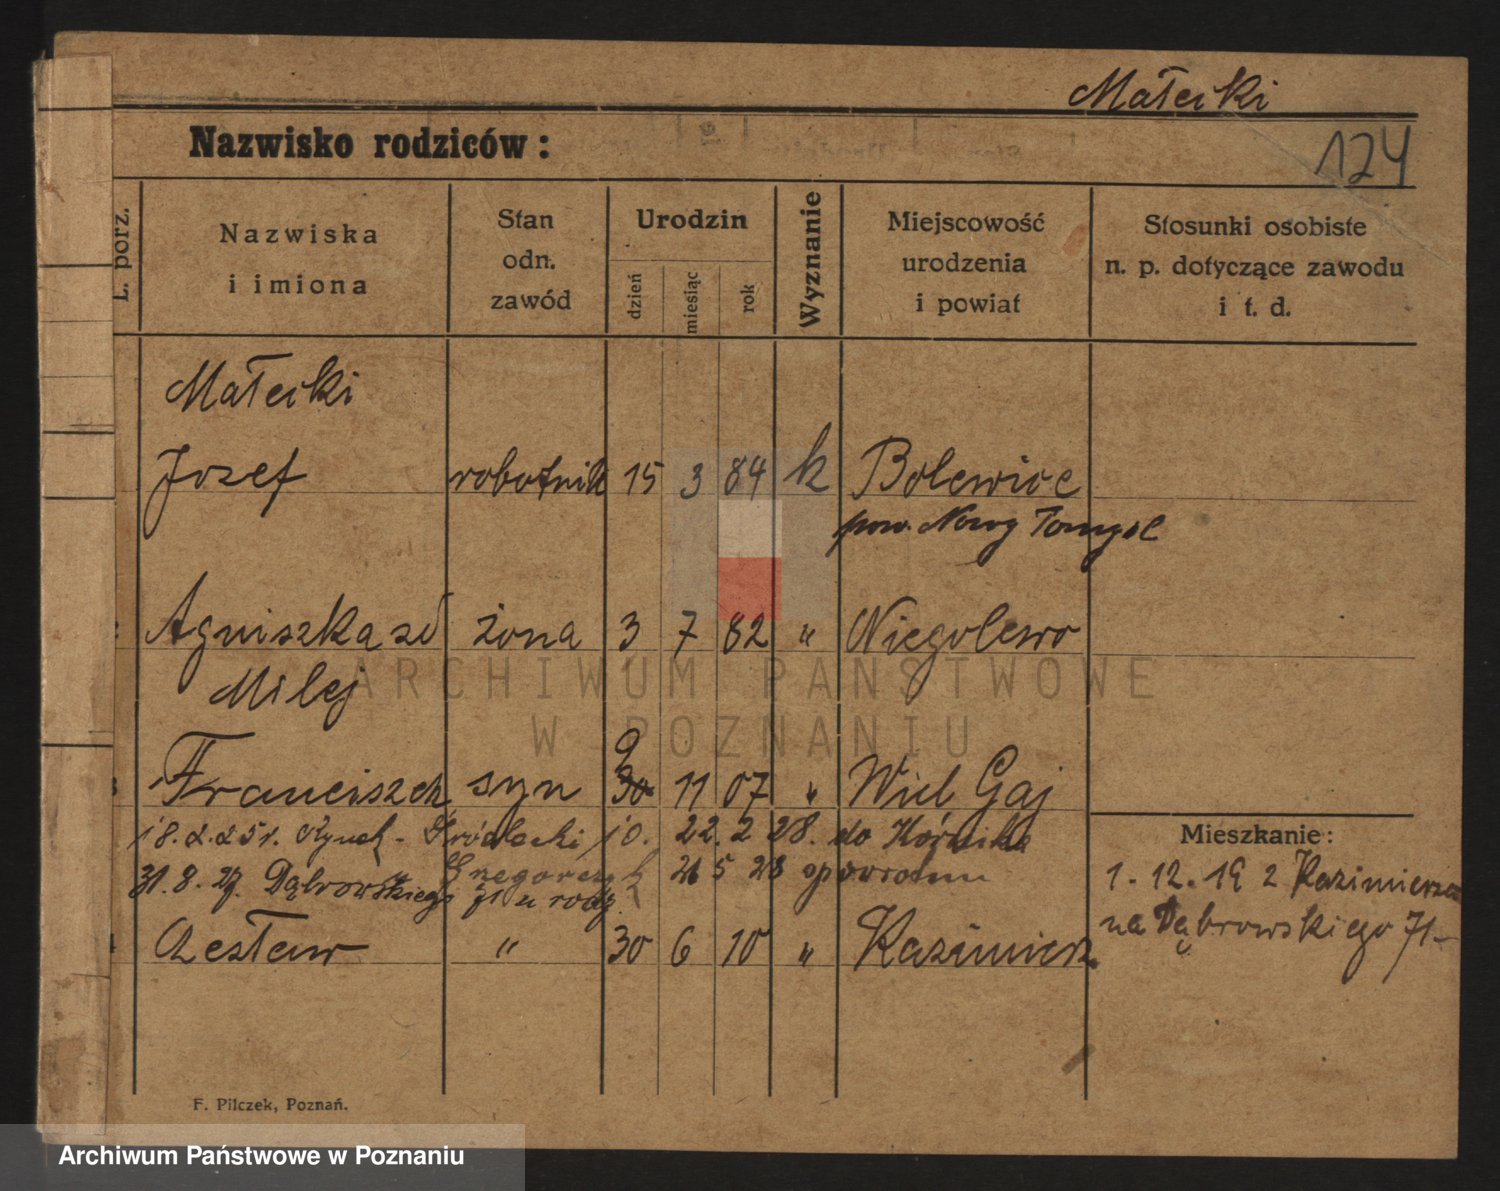 Małecki
Nazwisko rodziców:
124
L. porz.
Nazwiska
i imiona
Stan
odn.
zawód
Urodzin
dzień
miesiąc
rok
Wyznanie
Miejscowość
urodzenia
i powiat
Stosunki osobiste
n. p. dotyczące zawodu
i t. d.
Małecki
Józef robotnik 15 3 84 k Bolewice
pow. Nowy Tomysl
Agniszka zd żona 3 7 82 " Niegolewo
Milej
9
Franciszek syn 30 11 07 " Wiel Gaj
18.2.25 r. Rynek - 10. 22.2 28. do Kórnika
31.8.27. Dąbrowskiego 71 u rodz. 5 28 spowrotem
Czesław " 30 6 10 " Kazimierz
Mieszkanie:
1.12.19 z Kazimierza
na Dąbrowskiego 71-
F. Pilczek, Poznań.
ARCHIWUM PAŃSTWOWE
W POZNANIU
Archiwum Państwowe w Poznaniu